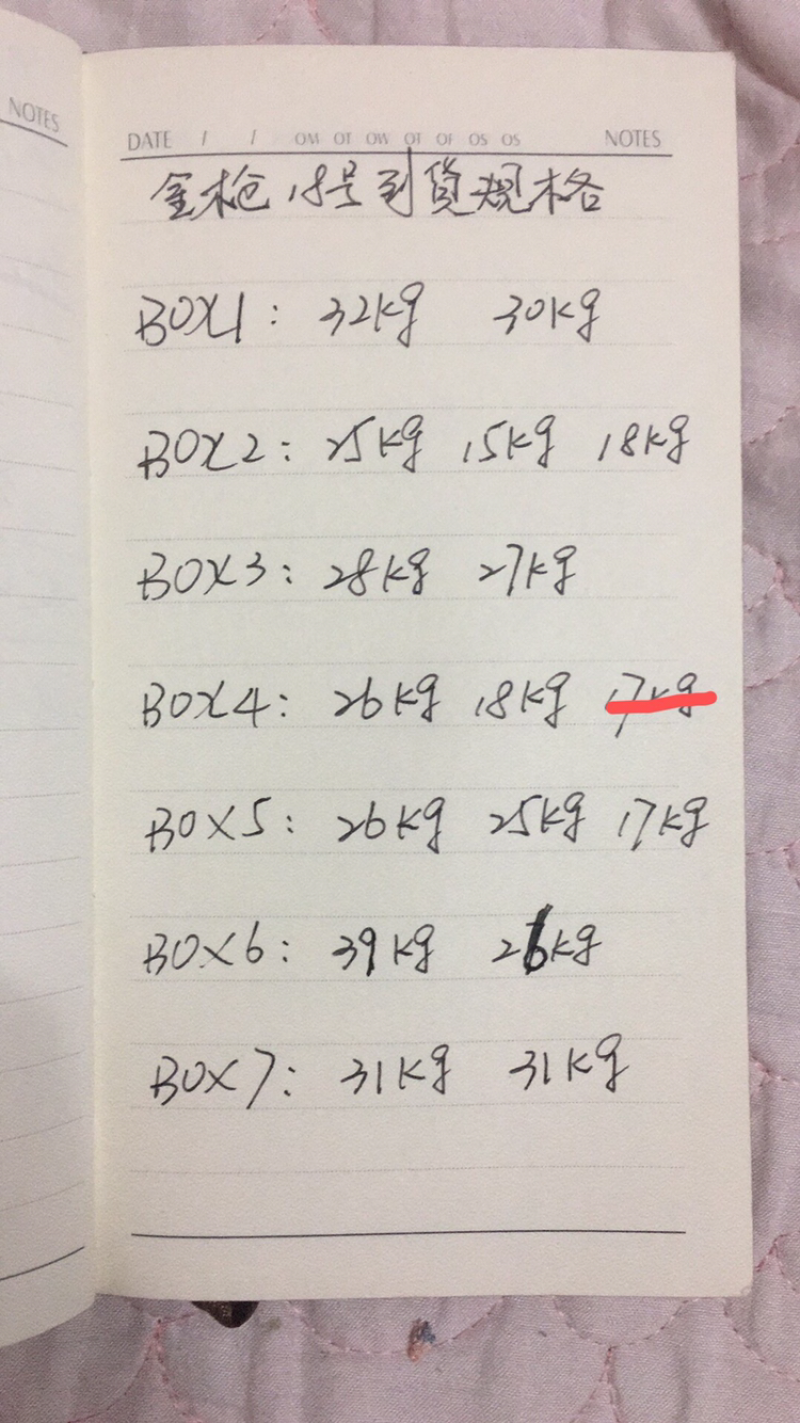 NOTES
DATE / / OM OT OW OT OF OS OS NOTES
金枪 18号到货规格
BOX1: 32kg 30kg
BOX2: 25kg 15kg 18kg
BOX3: 28kg 27kg
BOX4: 26kg 18kg 17kg
BOX5: 26kg 25kg 17kg
BOX6: 39kg 26kg
BOX7: 31kg 31kg